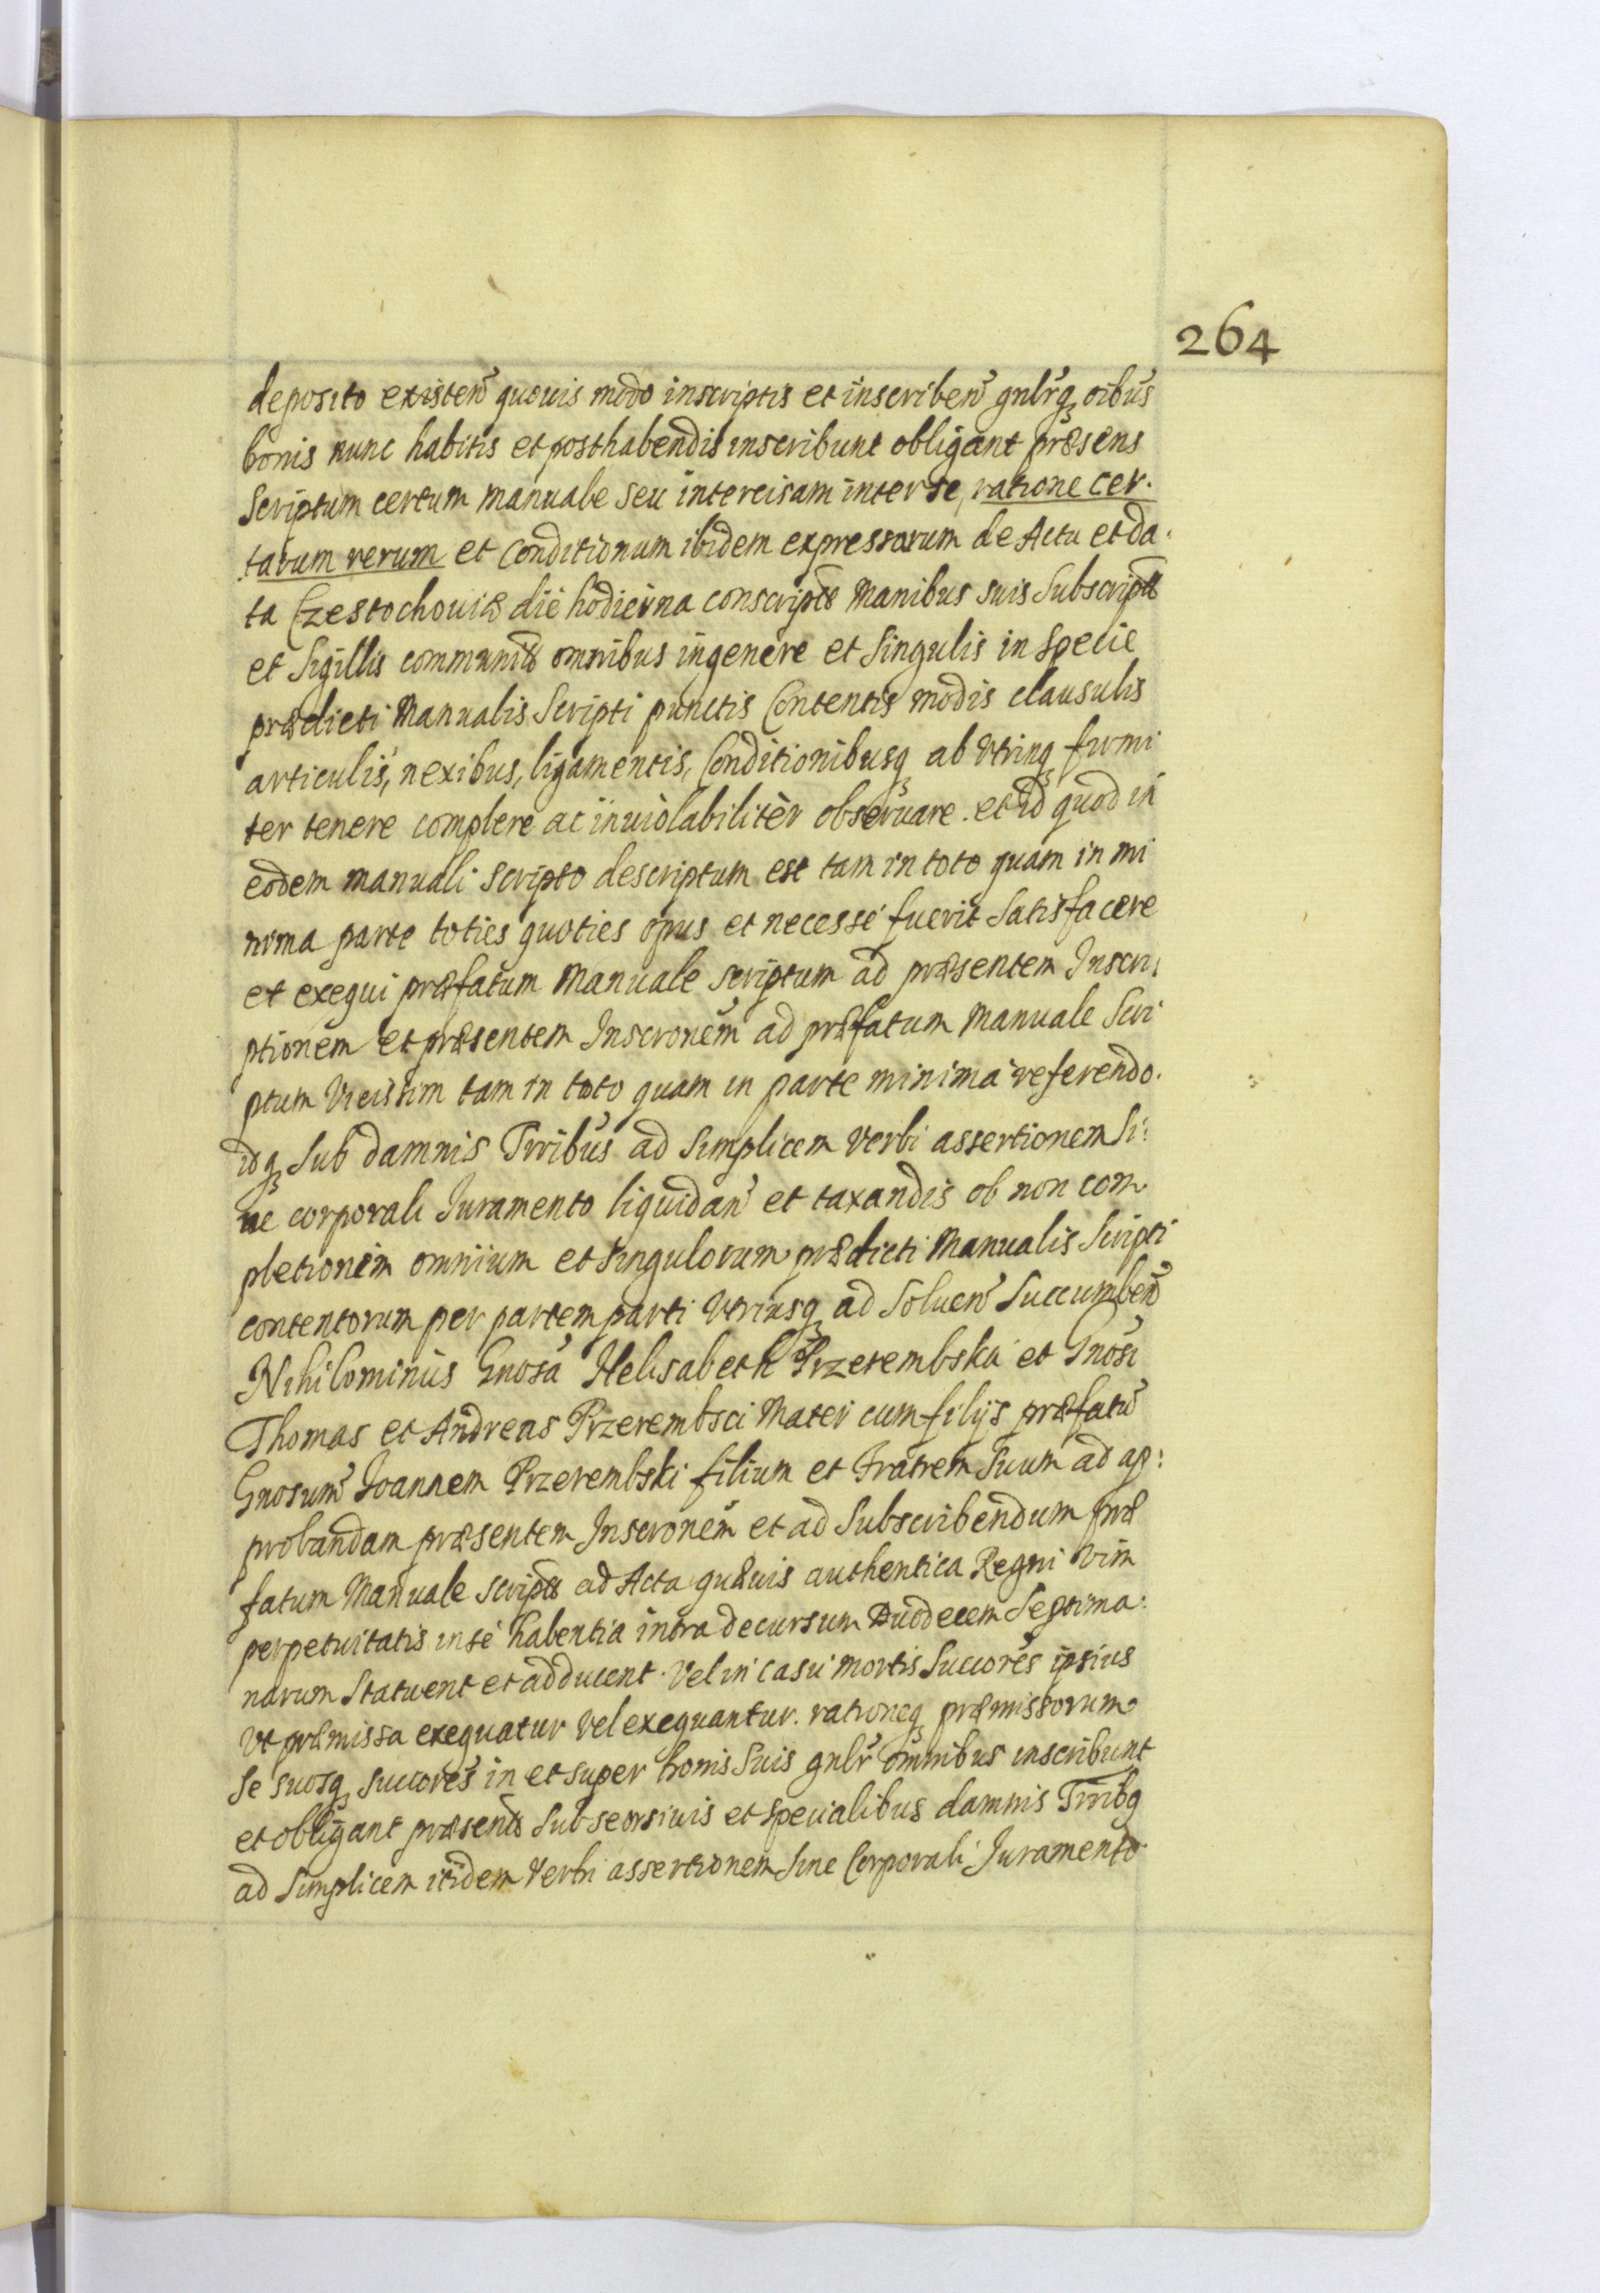 264
deposito existen̄ quouis modo inscriptis et inscriben̄ gnlr̄q oibūs
bonis nunc habitis et posthabendis inscribunt obligant præsens
Scriptum certum manuale seu intercisam inter se, ratione cer.
tarum rerum et Conditionum ibidem expressarum de Actu et da.
ta Częstochouiæ die hodierna conscript Manibus suis Subscript
et Sigillis communit omnibus in genere et Singulis in Specie
prædicti Manualis Scripti punctis Contentis modis clausulis
articulis, nexibus, ligamentis, Conditionibusq ab Vtrinq firmi
ter tenere complere ac inuiolabiliter obseruare. et id quod in
eodem manuali scripto descriptum est tam in toto quam in mi
nima parte toties quoties opus et necesse fuerit Satisfacere
et exequi præfatum Manuale scriptum ad præsentem Inscri
ptionem et præsentem Inscronēm ad præfatum Manuale Scri
ptum Vicissim tam in toto quam in parte minima referendo.
idq Sub damnis Trribūs ad Simplicem Verbi assertionem Si:
ne corporali Iuramento liquidan̄ et taxandis ob non com
pletionem omnium et Singulorum prædicti Manualis Scripti
contentorum per partem parti Vtriusq ad Soluen̄ Succumben̄
Nihilominus Gnosā Helisabeth Przerembska et Gnosī
Thomas et Andreas Przerembsci Mater cum filijs præfatū
Gnosum̄ Joannem Przerembski filium et Fratrem Suum ad ap:
probandam præsentem Inscronēm et ad Subscribendum præ
fatum Manuale script ad Acta quæuis authentica Regni vim
perpetuitatis in se habentia intra decursum Duodecem Septima:
narum Statuent et adducent. Vel in casu mortis Succorēs ipsius
Vt præmissa exequatur Vel exequantur. rationeq præmissorum
se suosq succorēs in et super bonis Suis gnlr̄ omnibus inscribunt
et obligant præsent Sub seorsiuis et specialibus damnis Trribq
ad Simplicem itidem Verbi assertionem Sine Corporali Iuramento